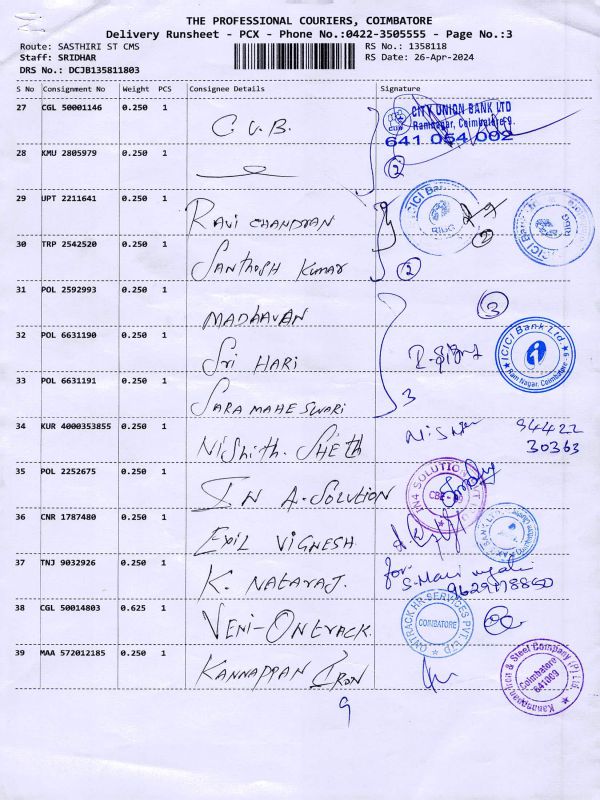 THE PROFESSIONAL COURIERS, COIMBATORE
Delivery Runsheet - PCX - Phone No.:0422-3505555 - Page No.:3
Route: SASTHIRI ST CMS
RS No.: 1358118
Staff: SRIDHAR
RS Date: 26-Apr-2024
DRS No.: DCJB135811803
S No Consignment No Weight PCS Consignee Details Signature
27 CGL 50001146 0.250 1 C.U.B.
CITY UNION BANK LTD
Ramnagar, Coimbatore-9.
641 054 002
28 KMU 2805979 0.250 1
2
29 UPT 2211641 0.250 1 RAVI CHANDRAN
ICICI Bank
2
30 TRP 2542520 0.250 1 SANTHOSH KUMAR
2
31 POL 2592993 0.250 1 MADHAVAN
3
32 POL 6631190 0.250 1 SRI HARI
ICICI Bank Ltd
Ram Nagar, Coimbatore
33 POL 6631191 0.250 1 SARAMAHESWARI
3
34 KUR 4000353855 0.250 1 NISHITH. SHETH
94422
30363
35 POL 2252675 0.250 1 IN A-SOLUTION
IN4 SOLUTION PVT LTD
36 CNR 1787480 0.250 1 EXIL VIGNESH
37 TNJ 9032926 0.250 1 K. NATARAJ.
for
38 CGL 50014803 0.625 1 VENI-ONTRACK.
ONTRACK HR SERVICES PVT. LTD
COIMBATORE
39 MAA 572012185 0.250 1 KANNAPPAN IRON
Kannappan Iron & Steel Company (P) Ltd.
Coimbatore
641009
9